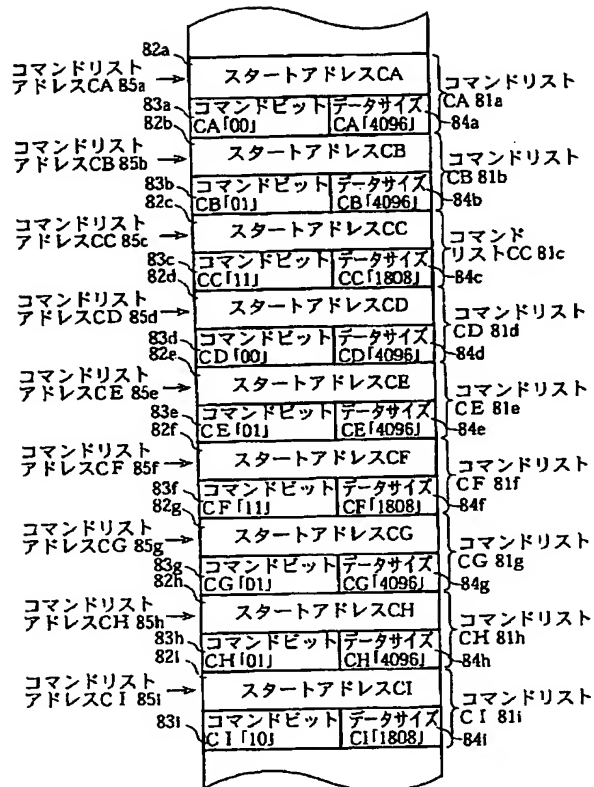 82a
コマンドリスト
アドレスCA 85a
スタートアドレスCA
コマンドリスト
CA 81a
83a
コマンドビット
CA「00」
データサイズ
CA「4096」
84a
82b
コマンドリスト
アドレスCB 85b
スタートアドレスCB
コマンドリスト
CB 81b
83b
コマンドビット
CB「01」
データサイズ
CB「4096」
84b
82c
コマンドリスト
アドレスCC 85c
スタートアドレスCC
コマンド
リストCC 81c
83c
コマンドビット
CC「11」
データサイズ
CC「1808」
84c
82d
コマンドリスト
アドレスCD 85d
スタートアドレスCD
コマンドリスト
CD 81d
83d
コマンドビット
CD「00」
データサイズ
CD「4096」
84d
82e
コマンドリスト
アドレスCE 85e
スタートアドレスCE
コマンドリスト
CE 81e
83e
コマンドビット
CE「01」
データサイズ
CE「4096」
84e
82f
コマンドリスト
アドレスCF 85f
スタートアドレスCF
コマンドリスト
CF 81f
83f
コマンドビット
CF「11」
データサイズ
CF「1808」
84f
82g
コマンドリスト
アドレスCG 85g
スタートアドレスCG
コマンドリスト
CG 81g
83g
コマンドビット
CG「01」
データサイズ
CG「4096」
84g
82h
コマンドリスト
アドレスCH 85h
スタートアドレスCH
コマンドリスト
CH 81h
83h
コマンドビット
CH「01」
データサイズ
CH「4096」
84h
82i
コマンドリスト
アドレスCI 85i
スタートアドレスCI
コマンドリスト
CI 81i
83i
コマンドビット
CI「10」
データサイズ
CI「1808」
84i